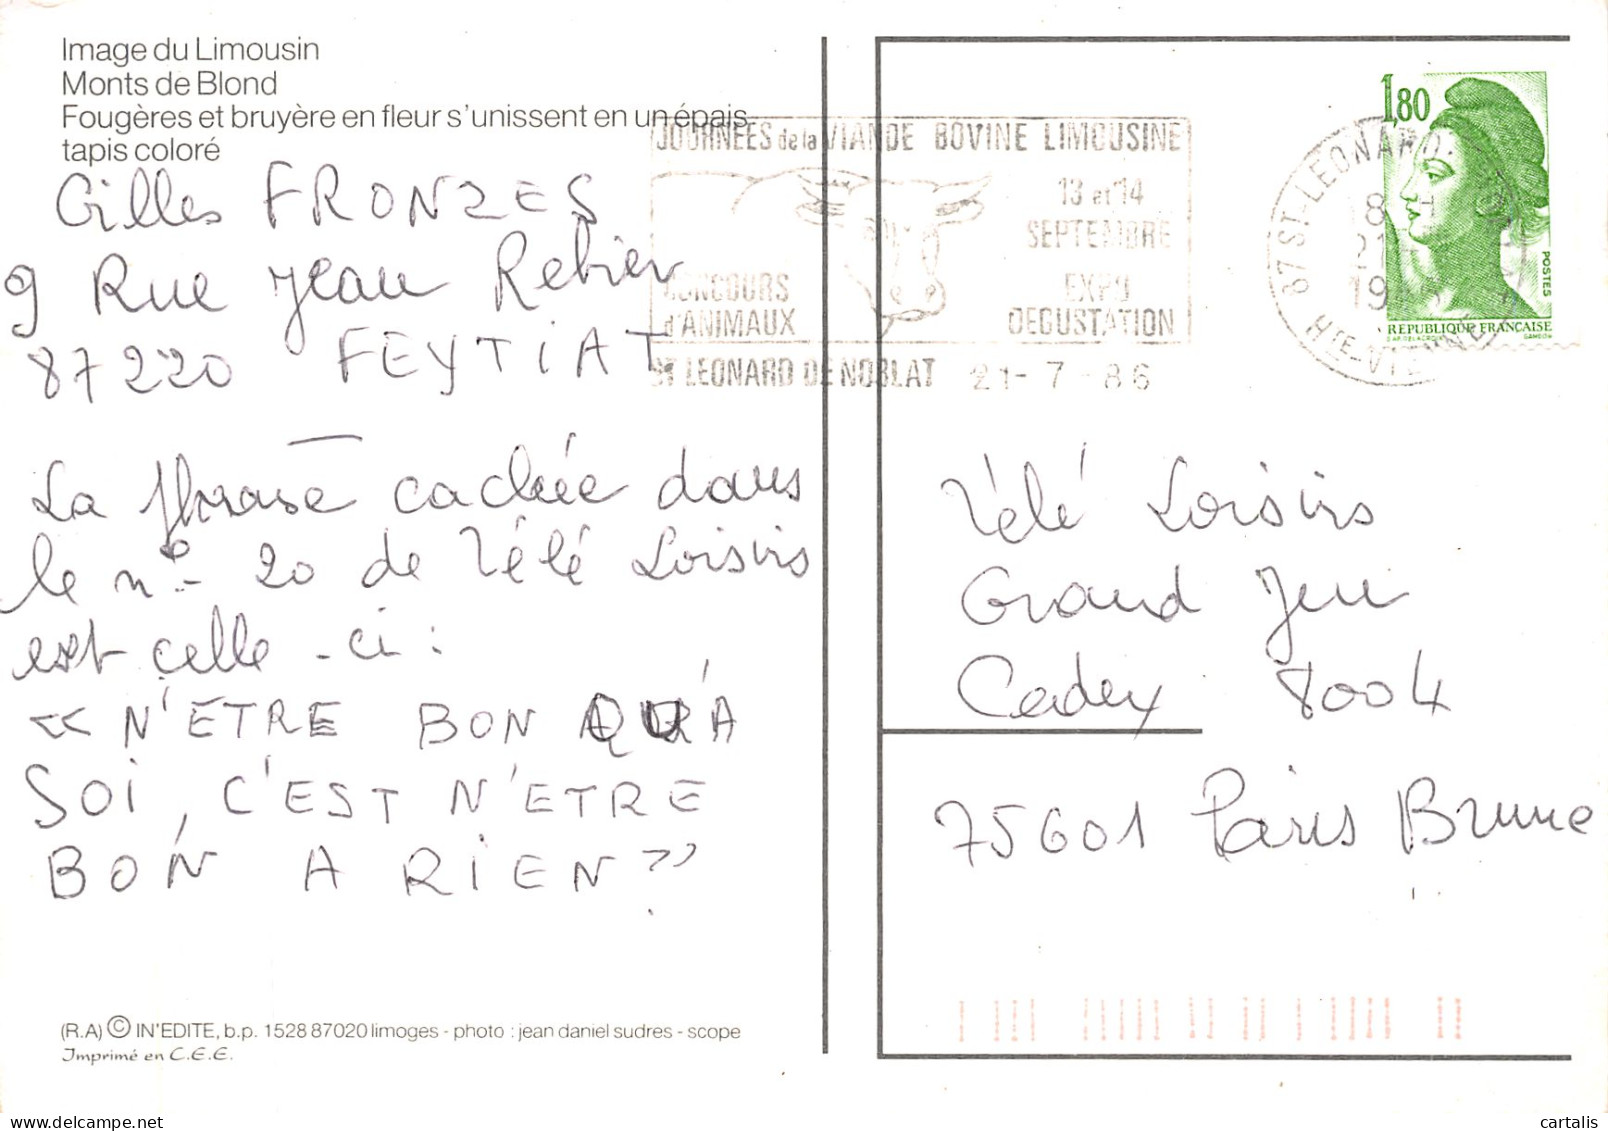 Image du Limousin
Monts de Blond
Fougères et bruyère en fleur s'unissent en un épais
tapis coloré
Gilles FRONZES
9 Rue Jean Rebier
87220 FEYTIAT
La phrase cachée dans
le n° 20 de Télé Loisirs
est celle-ci :
« N'ETRE BON QU'A
SOI, C'EST N'ETRE
BON A RIEN »
(R.A) © IN'EDITE, b.p. 1528 87020 limoges - photo : jean daniel sudres - scope
Imprimé en C.E.E.
JOURNÉES de la VIANDE BOVINE LIMOUSINE
13 et 14
SEPTEMBRE
CONCOURS
d'ANIMAUX
EXPO
DEGUSTATION
ST LEONARD DE NOBLAT 21-7-86
87 ST-LEONARD
HTE-VIENNE
1,80
POSTES
REPUBLIQUE FRANÇAISE
Télé Loisirs
Grand Jeu
Cedex 8004
75601 Paris Brune
cartalis
www.delcampe.net